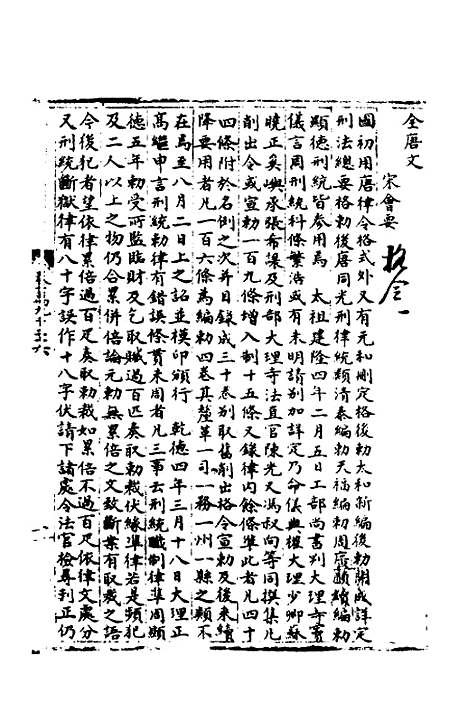 全唐文
宋會要
格令一
國初用唐律令格式外又有元和刪定格後勑太和新編後勑開成詳定
刑法總要格勑後唐同光刑律統類清泰編勑天福編勑周廣順續編勑
顯德刑統皆參用焉 太祖建隆四年二月五日工部尚書判大理寺竇
儀言周刑統科條繁浩或有未明請別加詳定乃命儀與權大理少卿蘇
曉正奚嶼承張希讓及刑部大理寺法直官陳光乂馮叔向等同撰集凡
削出令或宣勑一百九條增入制十五條又錄律內餘條準此者凡四十
四條附於名例之次并目錄成三十卷別取舊削出格令宣勑及後來續
降要用者凡一百六條為編勑四卷其釐革一司一務一州一縣之類不
在焉至八月二日上之詔並模印頒行 乾德四年三月十八日大理正
高繼申言刑統勑律有錯誤條貫未周者凡三事云刑統職制律準周顯
德五年勑受所監臨財及乞取贓過百匹奏取勑裁伏緣準律若是頻犯
及二人以上之物仍合累併倍論元勑無累倍之文致斷案有取裁之語
今後犯者望依律累倍過百疋奏取勑裁如累倍不過百疋依律文處分
又刑統斷獄律有八十字誤作十八字伏請下諸處令法官檢尋刊正仍